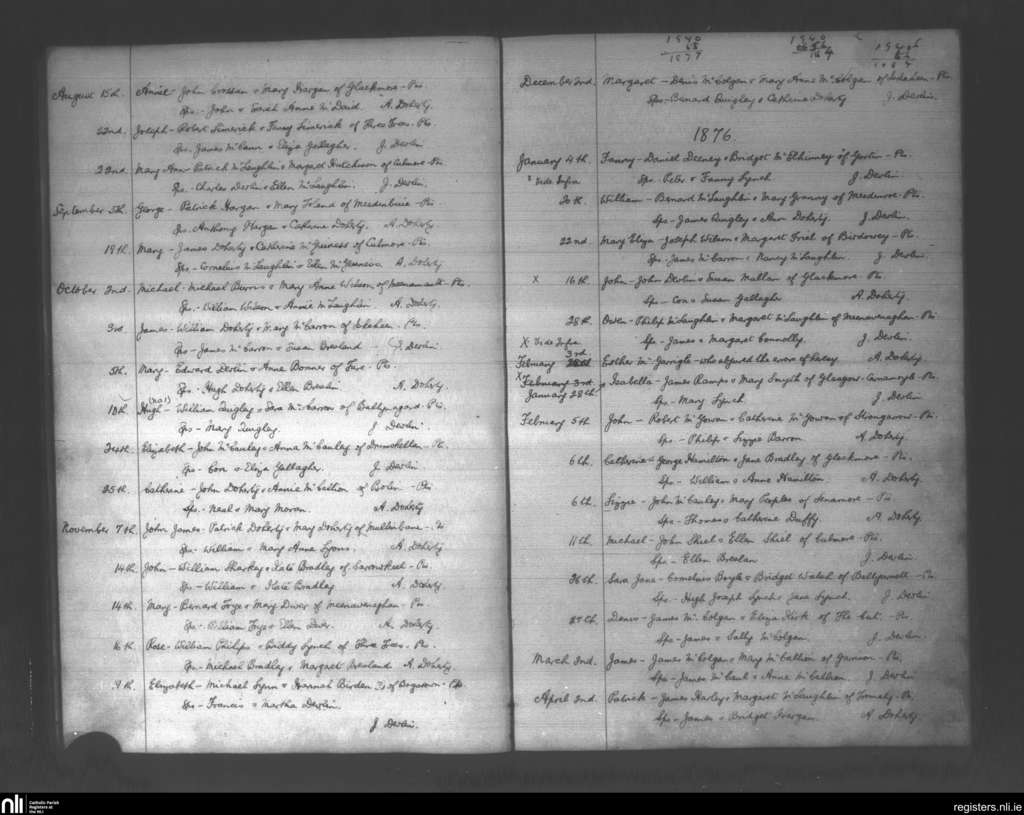 August 15th. Annie - John Crossan & Mary Hargan of Glackmore - Ps.
Sps. - John & Sarah Anne McDaid A. Doherty.
22nd. Joseph - Robert Limerick & Fanny Limerick of Three Trees - Ps.
Sps. James McCann & Eliza Gallagher. J. Devlin
22nd. Mary Ann - Patrick McLaughlin & Margaret Hutchison of Culmore - Ps.
Sps. Charles Devlin & Ellen McLaughlin. J. Devlin.
September 5th. George - Patrick Hargan & Mary Toland of - Ps.
Sps. Anthony Hargan & Catherine Doherty. A. Doherty
19th. Mary - James Doherty & Catherine McGuiness of Culmore - Ps.
Sps. - Cornelius McLaughlin & Ellen McGuiness A. Doherty
October 2nd. Michael - Michael Burns & Mary Anne Wilson of - Ps.
Sps. - William Wilson & Annie McLaughlin A. Doherty.
3rd. James - William Doherty & Mary McCarron of - Ps.
Sps - James McCarron & Susan Bresland J. Devlin
5th. Mary - Edward Devlin & Anne Bonner of - Ps.
Sps. Hugh Doherty & Ellen Breslin. A. Doherty
10th. Hugh - William Quigley & McCarron of Ballynagard - Ps.
Sps - Mary Quigley J. Devlin.
24th. Elizabeth - John McCauley & Anna McCauley of Drumskellan - Ps.
Sps - Con & Eliza Gallagher. J. Devlin
25th. Cathrine - John Doherty & Annie McCallion of - Ps
Sps. - Neal & Mary Moran. A. Doherty
November 7th. John James - Patrick Doherty & Mary Doherty of
Sps - William & Mary Anne Lyons. A. Doherty
14th. John - William Sharkey & Kate Bradley of - Ps
Sps - William & Kate Bradley A. Doherty.
14th. Mary - Bernard Foye & Mary Diver of Meenavenaghan - Ps
Sps. - William Foye & Ellen Diver. A. Doherty.
16th. Rose - William Philips & Biddy Lynch of Three Trees - Ps.
Sps - Michael Bradley & Margaret A. Doherty
9th. Elizabeth - Michael Lynn & Hannah Burden of - Ps
Sps - Francis & Martha Devlin.
J Devlin.
1940
1940
December 2nd. Margaret - Denis McColgan & Mary Anne McColgan of - Ps
Sps - Bernard Quigley & Catherine Doherty J. Devlin.
1876
January 4th. Fanny - Daniel Deeney & Bridget McElhinney of Gortin - Ps.
Vide Infra Sps. Peter & Fanny Lynch J. Devlin.
20th. William - Bernard McLaughlin & Mary Granny of - Ps.
Sps - James Quigley & Ann Doherty. J. Devlin.
22nd. Mary Eliza - Joseph Wilson & Margaret Friel of Birdstown - Ps.
Sps - James McCarron & Nancy McLaughlin. J. Devlin.
X 16th. John - John Devlin & Susan Mullan of Glackmore - Ps.
Sps - Con & Susan Gallagher A. Doherty.
28th. Owen - Philip McLaughlin & Margaret McLaughlin of Meenavenaghan - Ps
X Vide Infra Sps - James & Margaret Connolly. J. Devlin.
February 3rd Esther McGarrigle - who abjured the errors of heresy A. Doherty
X February 3rd.
January 28th. Isabella - James Ramps & Mary Smyth of Glasgow - Carnamoyle - Ps.
Sps - Mary Lynch J. Devlin
February 5th John - Robert McGowan & Catherine McGowan of - Ps.
Sps - Philip & Lizzie Barron A. Doherty.
6th. Catherine - George Hamilton & Jane Bradley of Glackmore - Ps.
Sps - William & Anne Hamilton. A. Doherty.
6th. Lizzie - John McCauley & Mary Peoples of - Ps
Sps - Thomas & Catherine Duffy A. Doherty.
11th. Michael - John Shiel & Ellen Shiel of Culmore - Ps.
Sps - Ellen Breslan J. Devlin.
26th. Sara Jane - Cornelius Boyle & Bridget Walsh of - Ps
Sps. - Hugh Joseph Lynch & Jane Lynch. J. Devlin
27th. Denis - James McColgan & Eliza Kirk of The Cut. Ps
Sps - James & Sally McColgan. J. Devlin.
March 2nd. James - James McColgan & Mary McCallion of - Ps.
Sps - James McCauley & Anne McCallion. J. Devlin
April 2nd. Patrick - James Harley & Margaret McLaughlin of - Ps
Sps - James & Bridget Hargan. A. Doherty.
nli Catholic Parish
Registers at
the NLI
registers.nli.ie